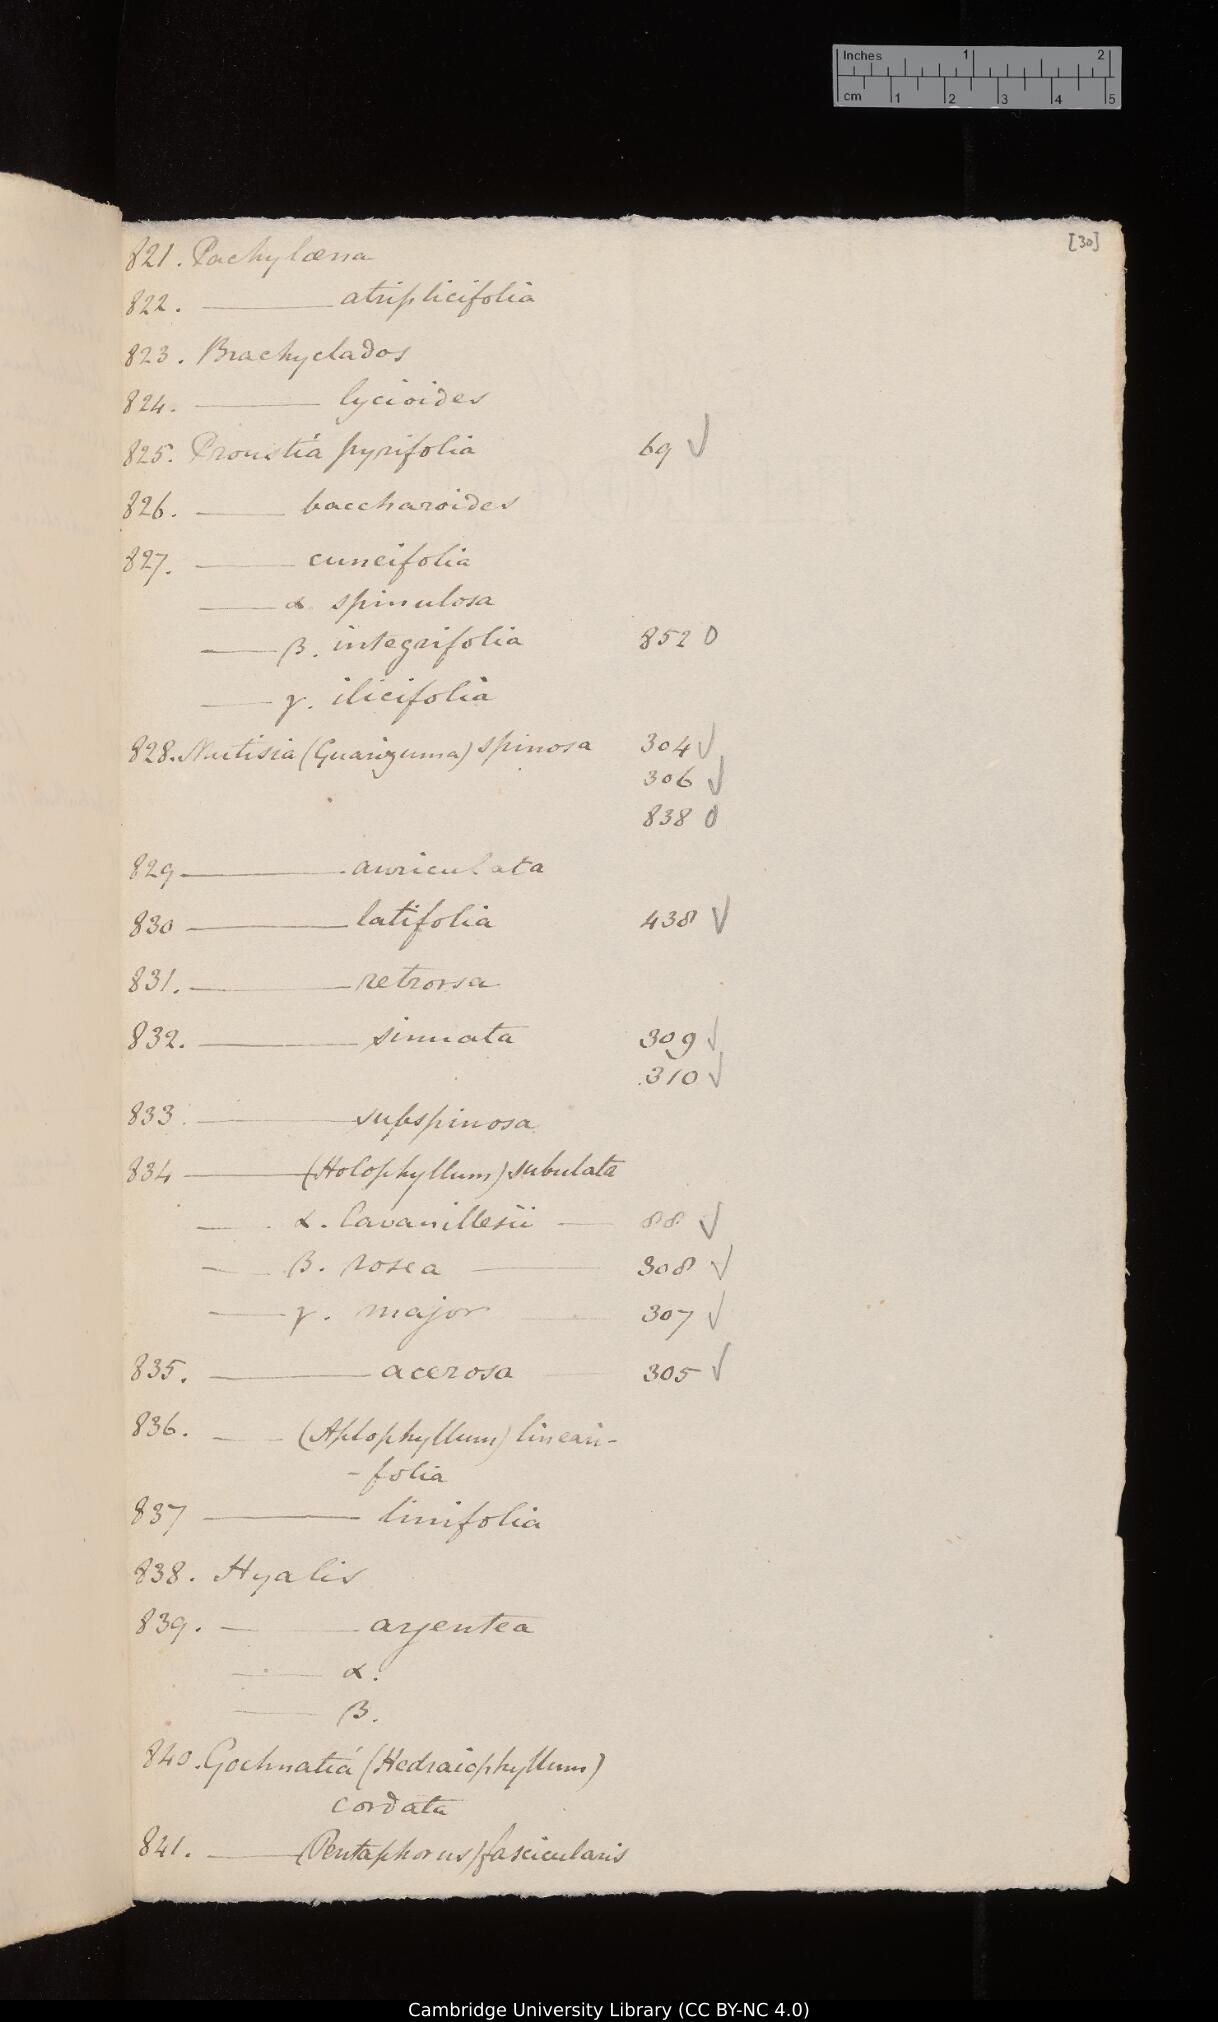 Inches 1 2
cm 1 2 3 4 5
[30]
821. Pachylæna
822. ——— atriplicifolia
823. Brachyclados
824. ——— lycioides
825. Proustia pyrifolia 69 ✓
826. ——— baccharoides
827. ——— cuneifolia
——— α. spinulosa
——— β. integrifolia 852 0
——— γ. ilicifolia
828. Mutisia (Guariguma) spinosa 304 ✓
306 ✓
838 0
829 ——— auriculata
830 ——— latifolia 438 ✓
831. ——— retrorsa
832. ——— sinuata 309 ✓
310 ✓
833. ——— subspinosa
834 ——— (Holophyllum) subulata
——— α. Cavanillesii —— 88 ✓
——— β. rosea —— 308 ✓
——— γ. major —— 307 ✓
835. ——— acerosa —— 305 ✓
836. ——— (Aplophyllum) lineari-
-folia
837 ——— linifolia
838. Hyalis
839. ——— argentea
——— α.
——— β.
840. Gochnatia (Hedraiophyllum)
cordata
841. ——— (Pentaphorus) fascicularis
Cambridge University Library (CC BY-NC 4.0)